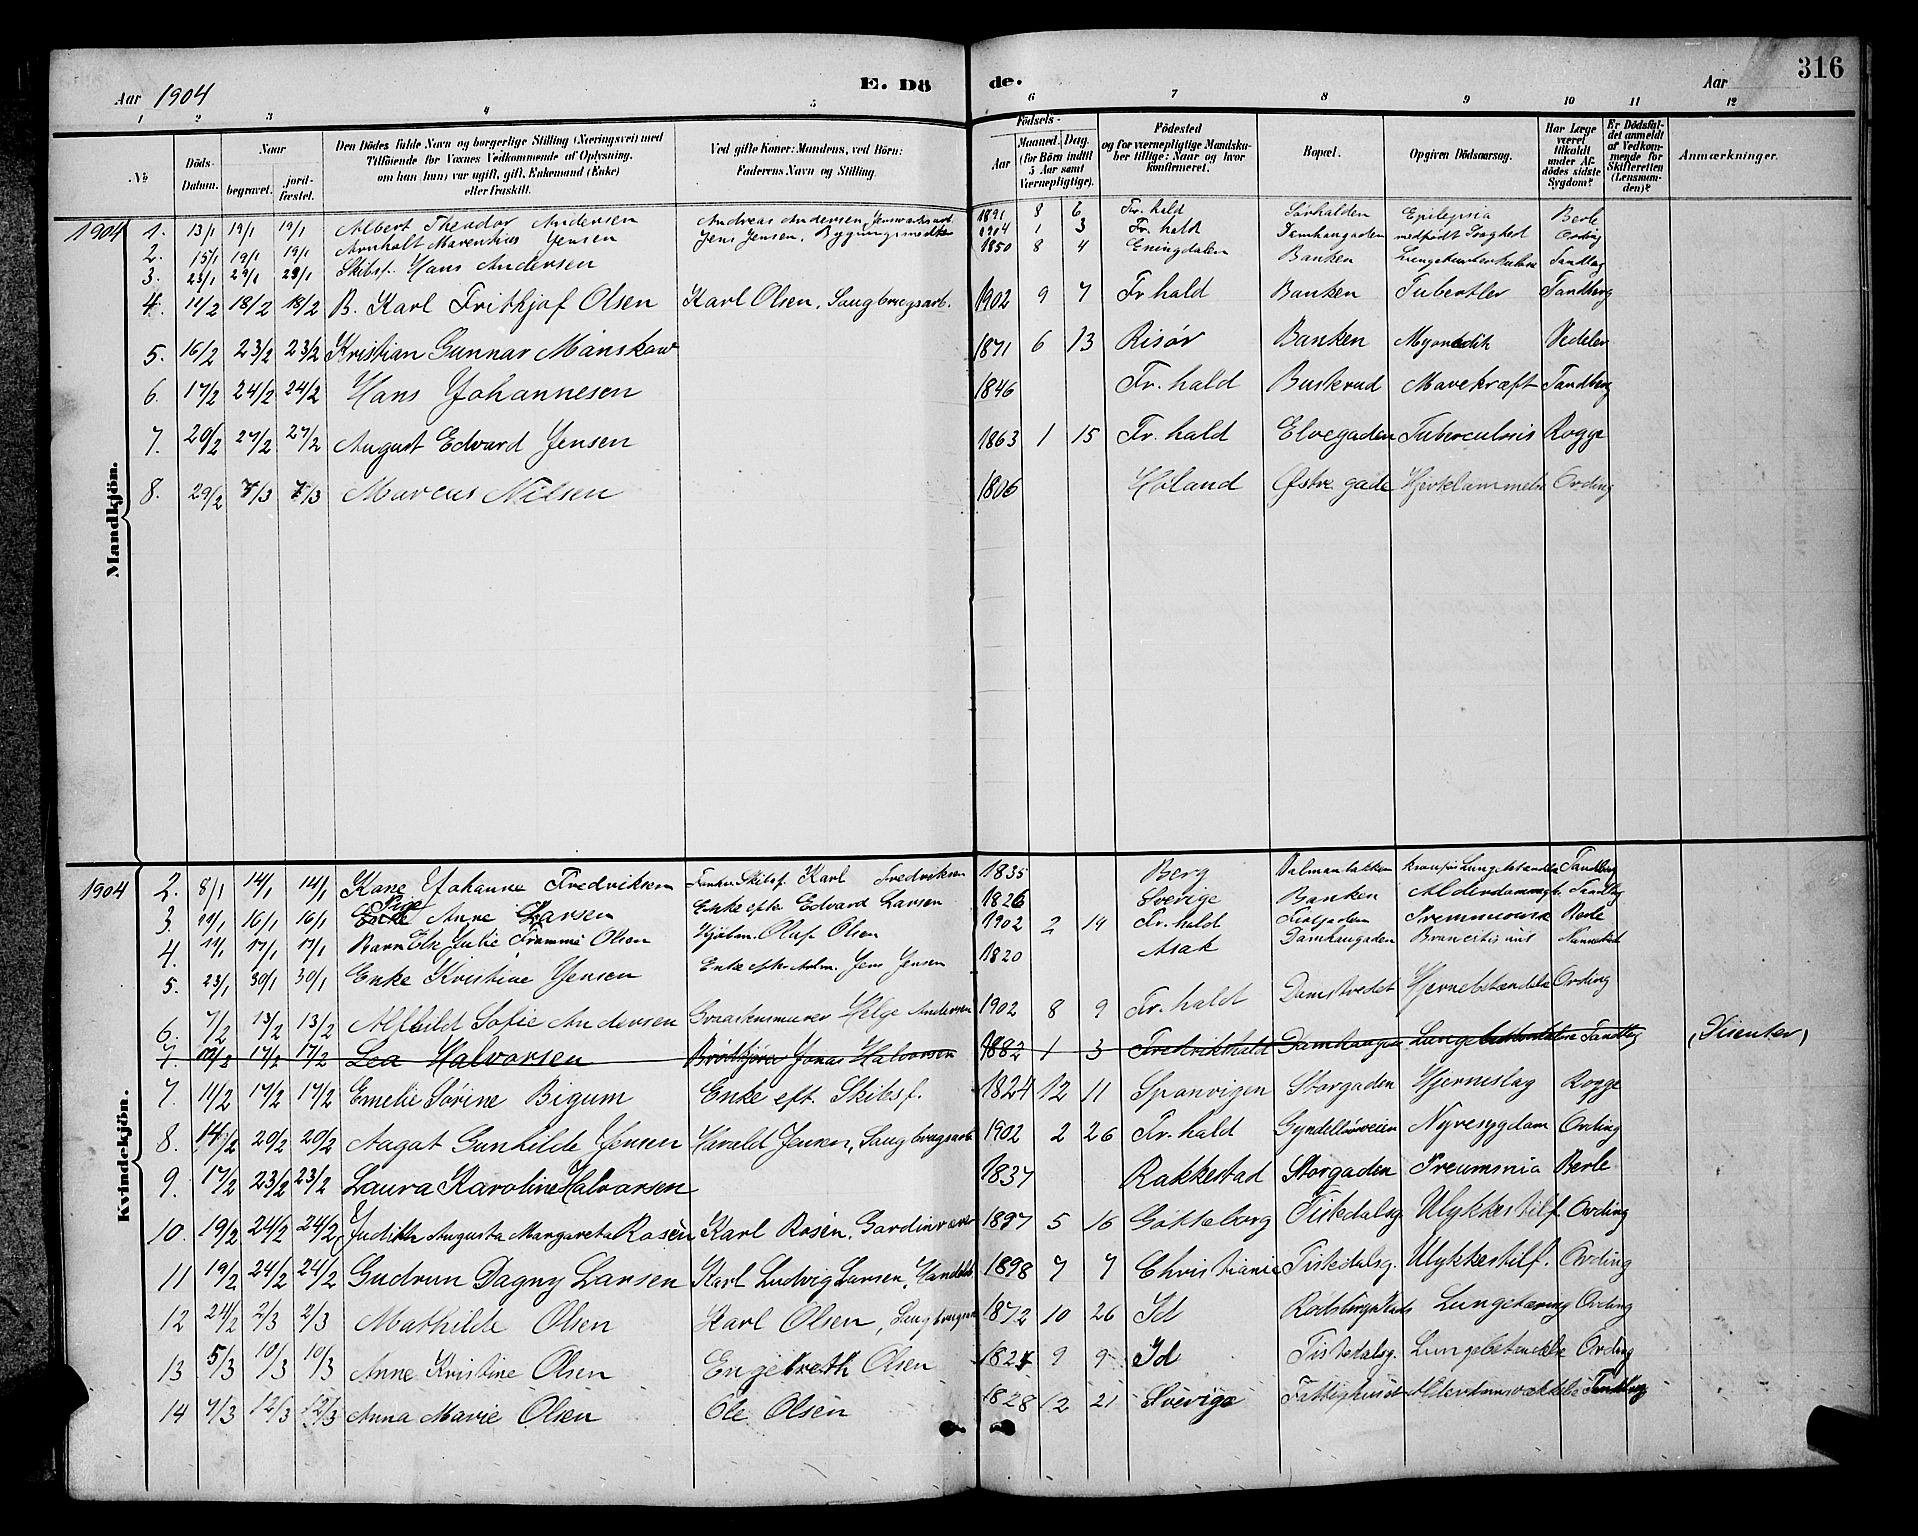 Aar 1904 E. Dö de. Aar 316
1 2 3 4 5 6 7 8 9 10 11 12
№ Döds-Datum. Naar begravet. jordfæstet. Den Dödes fulde Navn og borgerlige Stilling (Næringsvei) med Tilföiende for Voxnes Vedkommende af Oplysning, om han (hun) var ugift, gift, Enkemand (Enke) eller fraskilt. Ved gifte Koner: Mandens, ved Börn: Faderens Navn og Stilling. Födsels- Aar Maaned. Dag. (for Börn indtil 5 Aar samt Værnepligtige). Födested og for værnepligtige Mandskaber tillige: Naar og hvor konfirmeret. Bopæl. Opgiven Dödsaarsag. Har Læge været tilkaldt under Afdödes sidste Sygdom? Er Dödsfaldet anmeldt af Vedkommende for Skifteretten (Lensmanden)? Anmærkninger.
Mandkjön.
1904 1. 13/1 19/1 19/1 Albert Theodor Andersen Andreas Andersen 1891 8 6 Fr. hald Sørhalden Epilepsia Berle
2. 15/1 19/1 19/1 Arnholt Marentius Jensen Jens Jensen, 1904 1 3 Fr. hald Damhaugaden medfødt Svaghed Ording
3. 23/1 29/1 29/1 Skibsf. Hans Andersen 1850 8 4 Eningdalen Banken Tandberg
4. 11/2 18/2 18/2 B. Karl Frithjof Olsen Karl Olsen, Saugbrugsarb. 1902 9 7 Fr hald Banken Tubertler Tandberg
5. 16/2 23/2 23/2 Kristian Gunnar Månskow 1871 6 13 Risør Banken Vedeler
6. 17/2 24/2 24/2 Hans Johannesen 1846 Fr. hald Buskrud Mavekræft Tandberg
7. 20/2 27/2 27/2 August Edvard Jensen 1863 1 15 Fr. hald Elvegaden Tuberculosis Rogge
8. 29/2 7/3 7/3 Marcus Nilsen 1806 Høland Østre gade Ording
Kvindekjön.
1904 2. 8/1 14/1 14/1 Kone Johanne Fredriksen Skibsf. Karl Fredriksen 1835 Berg Tandberg
3. 11/1 16/1 16/1 Pige Enke Anne Larsen Enke efter Edvard Larsen 1826 Sverige Banken Tandberg
4. 11/1 17/1 17/1 Barn Else Julie Framme Olsen Olaf Olsen 1902 2 19 Fr. hald Berle
5. 23/1 30/1 30/1 Enke Kristine Jensen Enke efter Jens Jensen 1820 Asak Damhaugaden
6. 7/2 13/2 13/2 Alfhild Sofie Andersen Helge Andersen 1902 8 9 Fr. hald Damstredet Hjernebetændelse Ording
7. 17/2 17/2 Lea Halvorsen Jonas Halvorsen 1882 1 3 Fredrikhald Tandberg (Disenter)
7. 11/2 17/2 17/2 Emelie Sørine Bigum Enke eft. Skibsf. 1824 12 11 Sponvigen Storgaden Hjerneslag Rogge
8. 14/2 20/2 20/2 Aagot Gunhilde Jensen Harald Jensen, Saugbrugsarb 1902 2 26 Fr. hald Nyresygdom Ording
9. 17/2 23/2 23/2 Laura Karoline Halvorsen 1837 Rakkestad Storgaden Preumonia Berle
10. 19/2 24/2 24/2 Judith Augusta Margareta Rosén Karl Rosén, Gardinvæver 1897 5 16 Gøtteborg Tistedalsg Ulykkestilf. Ording
11 19/2 24/2 24/2 Gudrun Dagny Larsen Karl Ludvig Larsen, 1898 7 7 Christiania Tistedalsg. Ulykkestilf. Ording
12 24/2 2/3 2/3 Mathilde Olsen Karl Olsen, 1872 10 26 Id Lungetæring Ording
13 5/3 10/3 10/3 Anne Kristine Olsen Engebreth Olsen 1824 9 9 Id Tistedalsg. Lungebetændelse Ording
14 7/3 12/3 12/3 Anna Marie Olsen Ole Olsen 1828 12 21 Sverige Fattighuset Tandberg